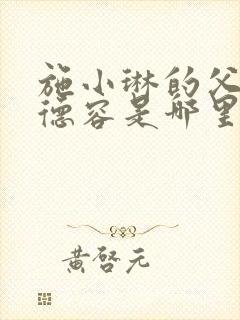 施小琳的父
德容是哪里
黄启元